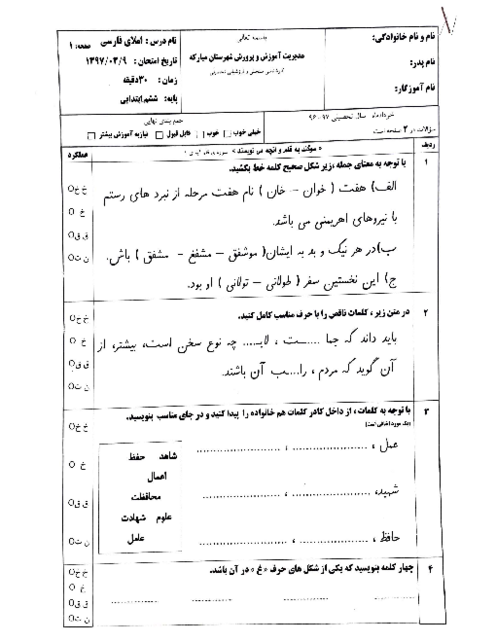 نام و نام خانوادگی:
نام پدر:
نام آموزگار:
بسمه تعالی
مدیریت آموزش و پرورش شهرستان مبارکه
نام درس : املای فارسی
صفحه: ۱
تاریخ امتحان : ۱۳۹۷/۰۳/۹
زمان : ۳۰دقیقه
پایه: ششم ابتدایی
خردادماه سال تحصیلی ۹۷-۹۶
سؤالات در ۲ صفحه است
جمع بندی نهایی
خیلی خوب خوب قابل قبول نیاز به آموزش بیشتر
ردیف
« سوگند به قلم و آنچه می نویسند »
عملکرد
۱ با توجه به معنای جمله ،زیر شکل صحیح کلمه خط بکشید.
الف) هفت ( خوان – خان ) نام هفت مرحله از نبرد های رستم
با نیروهای اهریمنی می باشد.
ب)در هر نیک و بد به ایشان( موشفق – مشفغ - مشفق ) باش.
ج) این نخستین سفر ( طولانی – تولانی ) او بود.
خ خ
خ
ق ق
ن ت
۲ در متن زیر ، کلمات ناقص را با حرف مناسب کامل کنید.
باید داند که جما ......ت ، لایـ.... چه نوع سخن است، بیشتر، از
آن گوید که مردم ، را.....ب آن باشند.
خ خ
خ
ق ق
ن ت
۳ با توجه به کلمات ، از داخل کادر کلمات هم خانواده را پیدا کنید و در جای مناسب بنویسید.
(یک مورد اضافی است)
عمل ، ...................... ، ......................
شهید، ...................... ، ......................
حافظ ، ...................... ، ......................
شاهد حفظ
اعمال
محافظت
علوم شهادت
عامل
خ خ
خ
ق ق
ن ت
۴ چهار کلمه بنویسید که یکی از شکل های حرف « غ » در آن باشد.
................ ................ ................ ................
خ خ
خ
ق ق
ن ت